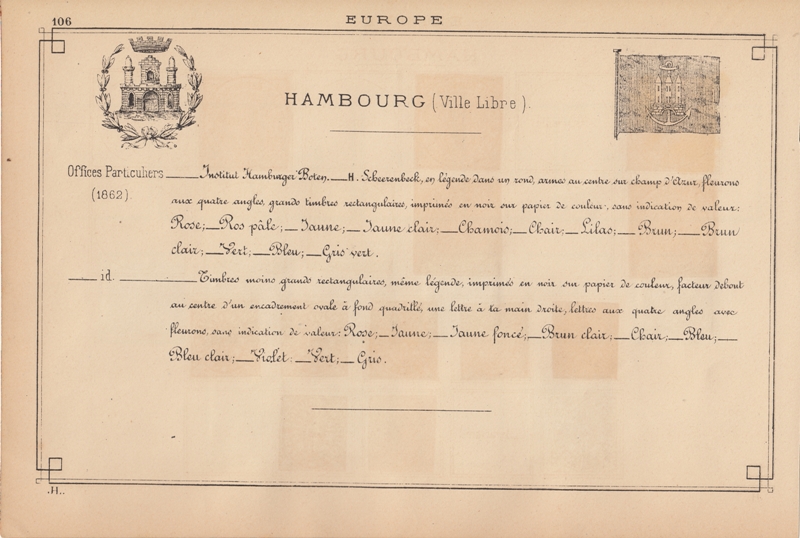 106
EUROPE
HAMBOURG (Ville Libre).
Offices Particuliers ___ Institut Hamburger Boten.__ H. Scheerenbeck, en légende dans un rond, armes au centre sur champ d'Azur, fleurons
(1862). aux quatre angles, grands timbres rectangulaires, imprimés en noir sur papier de couleur, sans indication de valeur:
Rose;__ Ros pâle;__ Jaune;__ Jaune clair;__ Chamois;__ Chair;__ Lilas;__ Brun;__ Brun
clair;__ Vert;__ Bleu;__ Gris vert.
___ id. ___ Timbres moins grands rectangulaires, même légende, imprimés en noir sur papier de couleur, facteur debout
au centre d'un encadrement ovale à fond quadrillé, une lettre à la main droite, lettres aux quatre angles avec
fleurons, sans indication de valeur: Rose;__ Jaune;__ Jaune foncé;__ Brun clair;__ Chair;__ Bleu;__
Bleu clair;__ Violet:__ Vert;__ Gris.
.H..